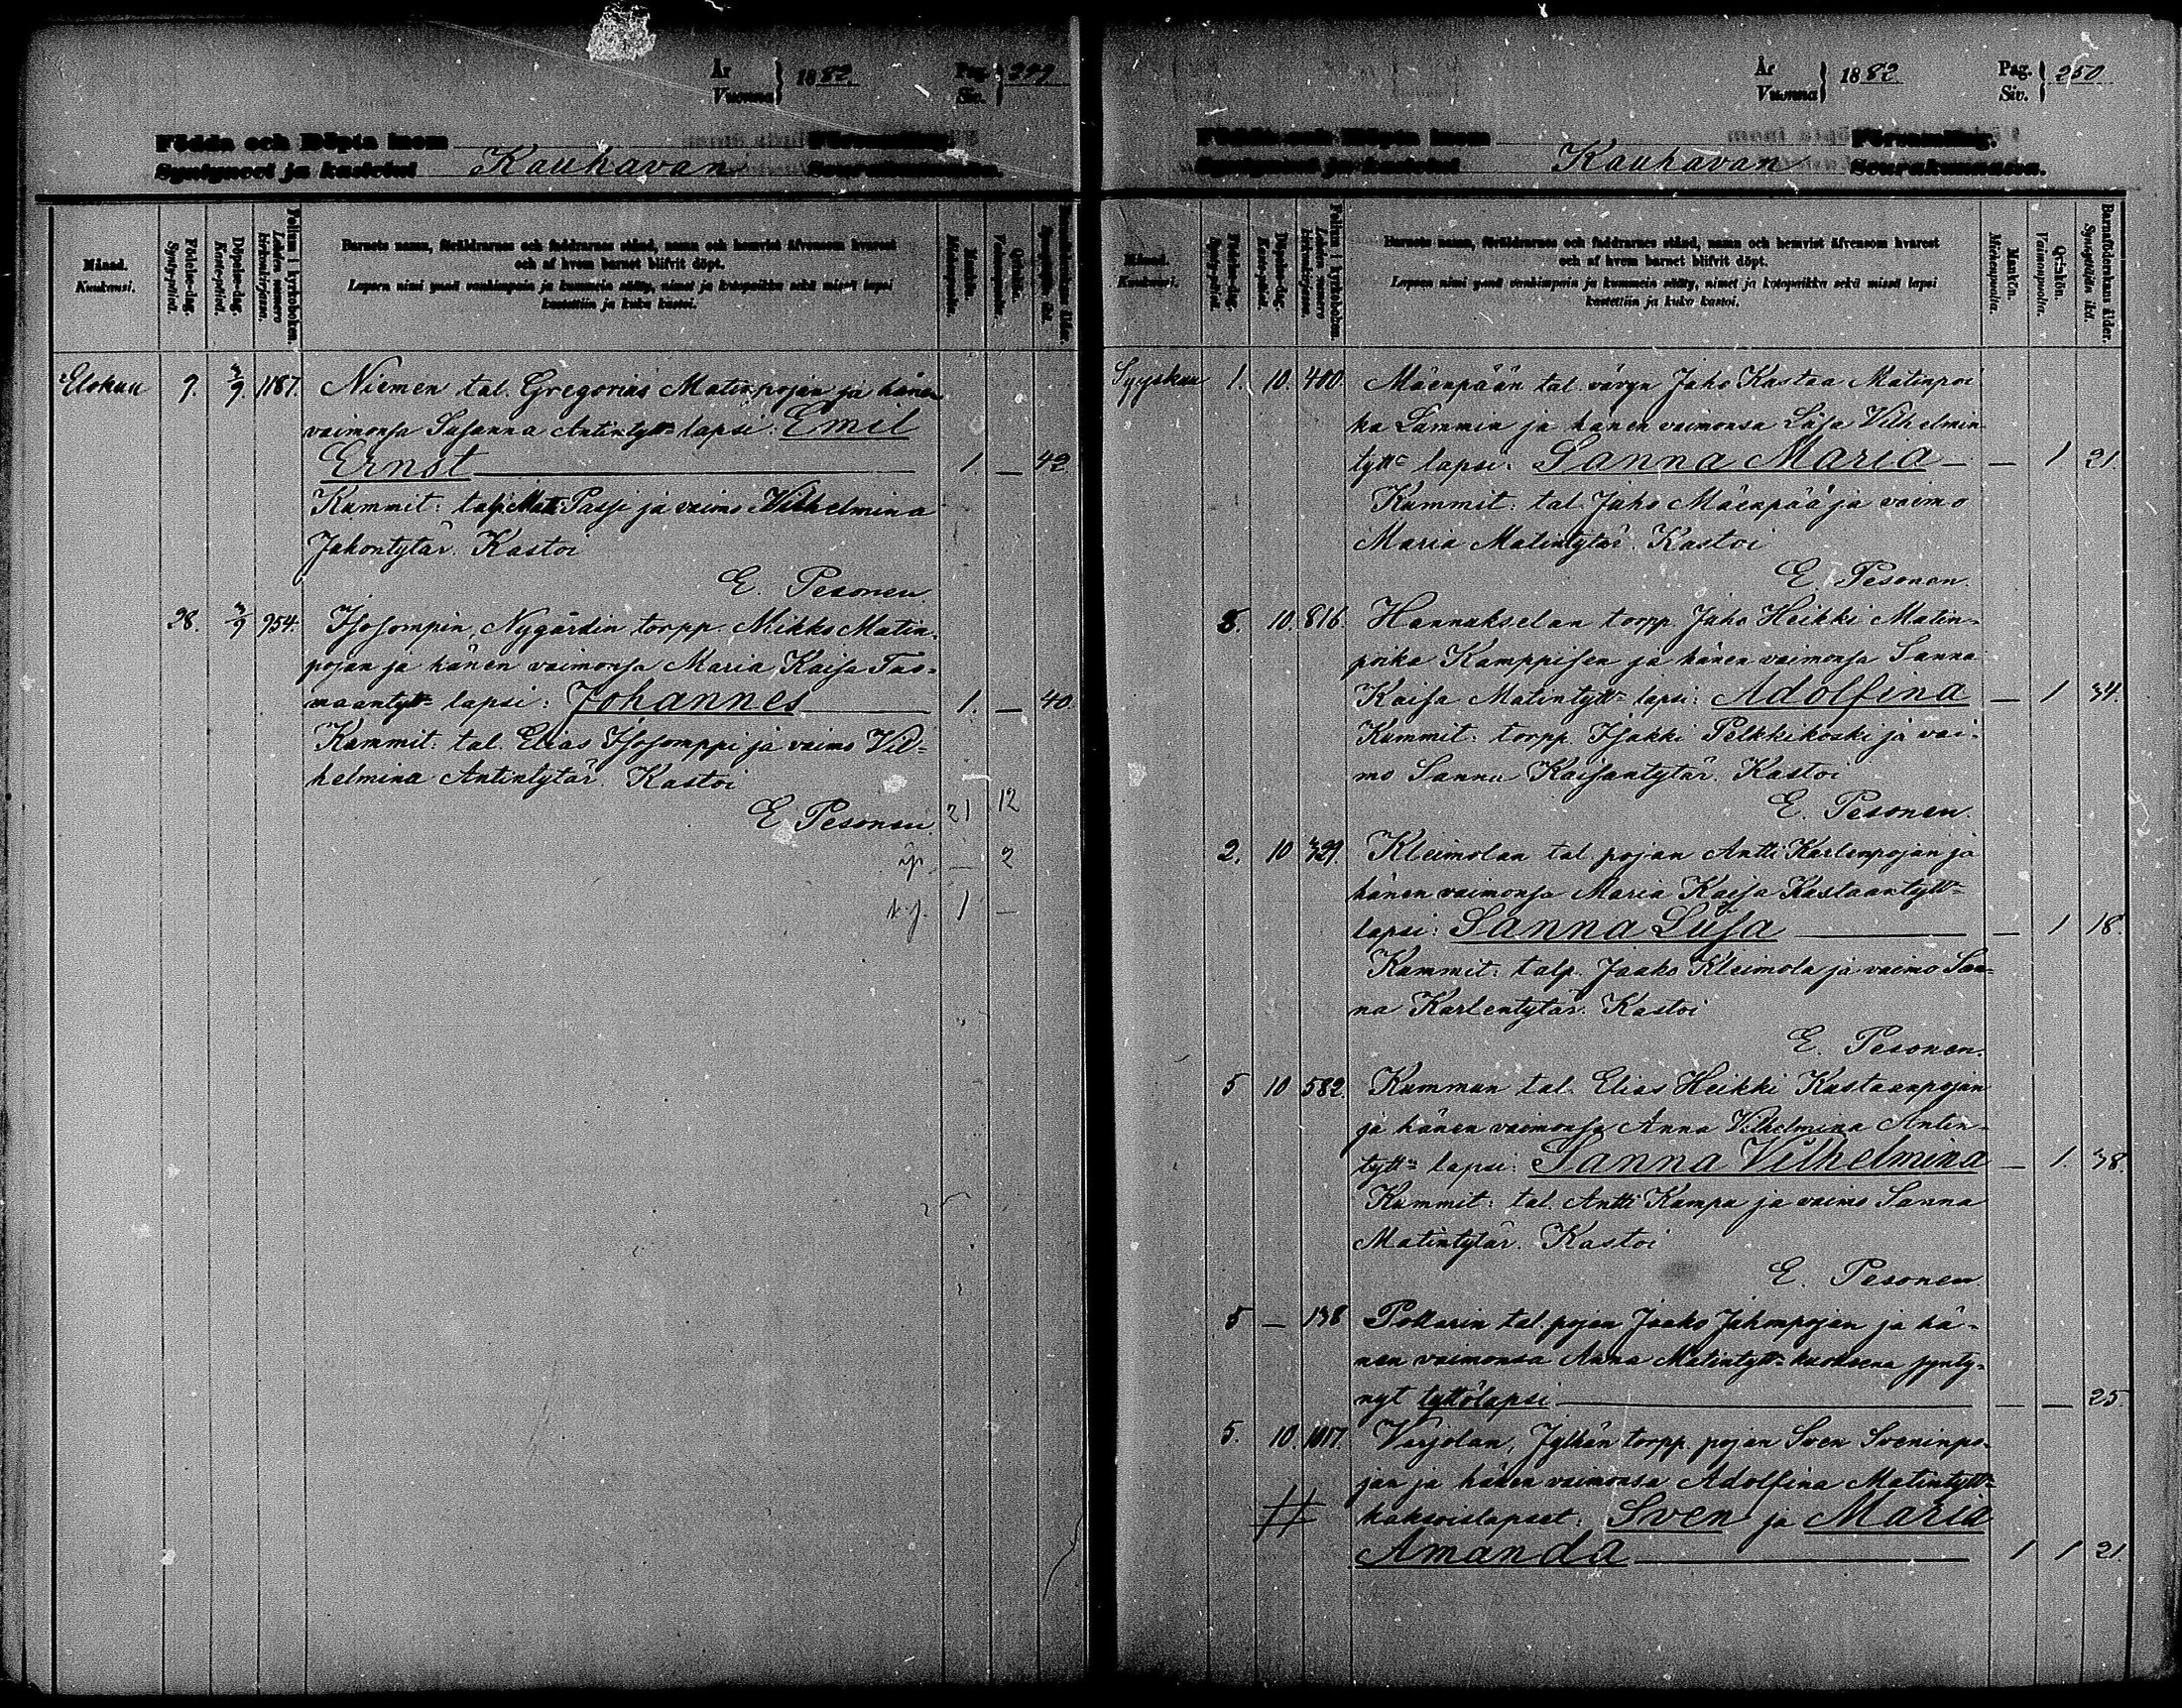 År
Vuonna
1882.
Pag.
Siv.
249
Födda och Döpta inom Församling.
Syntyneet ja kastetut Kauhavan Seurakunnassa.
Månad.
Kuukausi.
Födelse-dag.
Syntypäivä.
Döpelse-dag.
Kastepäivä.
Folium i kyrkoboken.
Lehden numero kirkonkirjassa.
Barnets namn, föräldrarnes och faddrarnes stånd, namn och hemvist äfvensom hvarest
och af hvem barnet blifvit döpt.
Lapsen nimi ynnä vanhimpain ja kummein sääty, nimet ja kotopaikka sekä missä lapsi
kastettiin ja kuka kastoi.
Mankön.
Miehenpuolia.
Qvinkön.
Vaimonpuolia.
Barnaföderskans ålder.
Synnyttäjän ikä.
Elokuu 9. 3/9. 1187. Niemen tal. Gregorius Matinpojan ja hänen
vaimonsa Susanna Antintytt= lapsi: Emil
Ernst 1. — 42.
Kummit: talp. Matti Passi ja vaimo Vilhelmina
Juhontytär. Kastoi
E. Pesonen.
28. 3/9 954. Isosompin, Nygårdin torpp. Mikko Matin-
pojan ja hänen vaimonsa Maria Kaisa Tuo-
maantytt= lapsi: Johannes 1. — 40.
Kummit: tal. Elias Isosomppi ja vaimo Vil-
helmina Antintytär. Kastoi
E. Pesonen. 21 12
äp. — 2
k.s. 1 —
År
Vuonna
1882
Pag.
Siv.
250
Födda och Döpta inom Församling.
Syntyneet ja kastetut Kauhavan Seurakunnassa.
Månad.
Kuukausi.
Födelse-dag.
Syntypäivä.
Döpelse-dag.
Kastepäivä.
Folium i kyrkoboken.
Lehden numero kirkonkirjassa.
Barnets namn, föräldrarnes och faddrarnes stånd, namn och hemvist äfvensom hvarest
och af hvem barnet blifvit döpt.
Lapsen nimi ynnä vanhimpain ja kummein sääty, nimet ja kotopaikka sekä missä lapsi
kastettiin ja kuka kastoi.
Mankön.
Miehenpuolia.
Qvinkön.
Vaimonpuolia.
Barnaföderskans ålder.
Synnyttäjän ikä.
Syyskuu 1. 10. 400. Mäenpään tal. vävyn Juho Kustaa Matinpoi
ka Lammin ja hänen vaimonsa Liisa Vilhelmin
tytt= lapsi: Sanna Maria — — 1 21
Kummit: tal. Juho Mäenpää ja vaimo
Maria Matintytär. Kastoi
E. Pesonen.
8. 10. 816. Hannukselan torpp. Juho Heikki Matin-
poika Kamppisen ja hänen vaimonsa Sanna
Kaisa Matintytt= lapsi: Adolfina — 1 34.
Kummit: torpp. Isakki Pelkkikoski ja vai-
mo Sanna Kaisantytär. Kastoi
E. Pesonen.
2. 10 329. Kleimolan tal. pojan Antti Karlenpojan ja
hänen vaimonsa Maria Kaisa Kustaantytt=
lapsi: Sanna Liisa — 1 18.
Kummit: talp. Jaako Kleimola ja vaimo San-
na Karlentytär. Kastoi
E. Pesonen.
5 10 582. Kumman tal. Elias Heikki Kustaanpojan
ja hänen vaimonsa Anna Vilhelmina Antin-
tytt= lapsi: Sanna Vilhelmina — 1. 38.
Kummit: tal. Antti Kampa ja vaimo Sanna
Matintytär. Kastoi
E. Pesonen.
5 — 138 Pottarin tal. pojan Jaako Juhonpojan ja hä-
nen vaimonsa Anna Matintytt= kuolleena synty-
nyt tyttölapsi — — 25.
5. 10. 1017. Varjolan, Jylhän torpp. pojan Sven Sveninpo-
jan ja hänen vaimonsa Adolfina Matintytt=
# kaksoislapset: Sven ja Maria
Amanda 1 1 21.